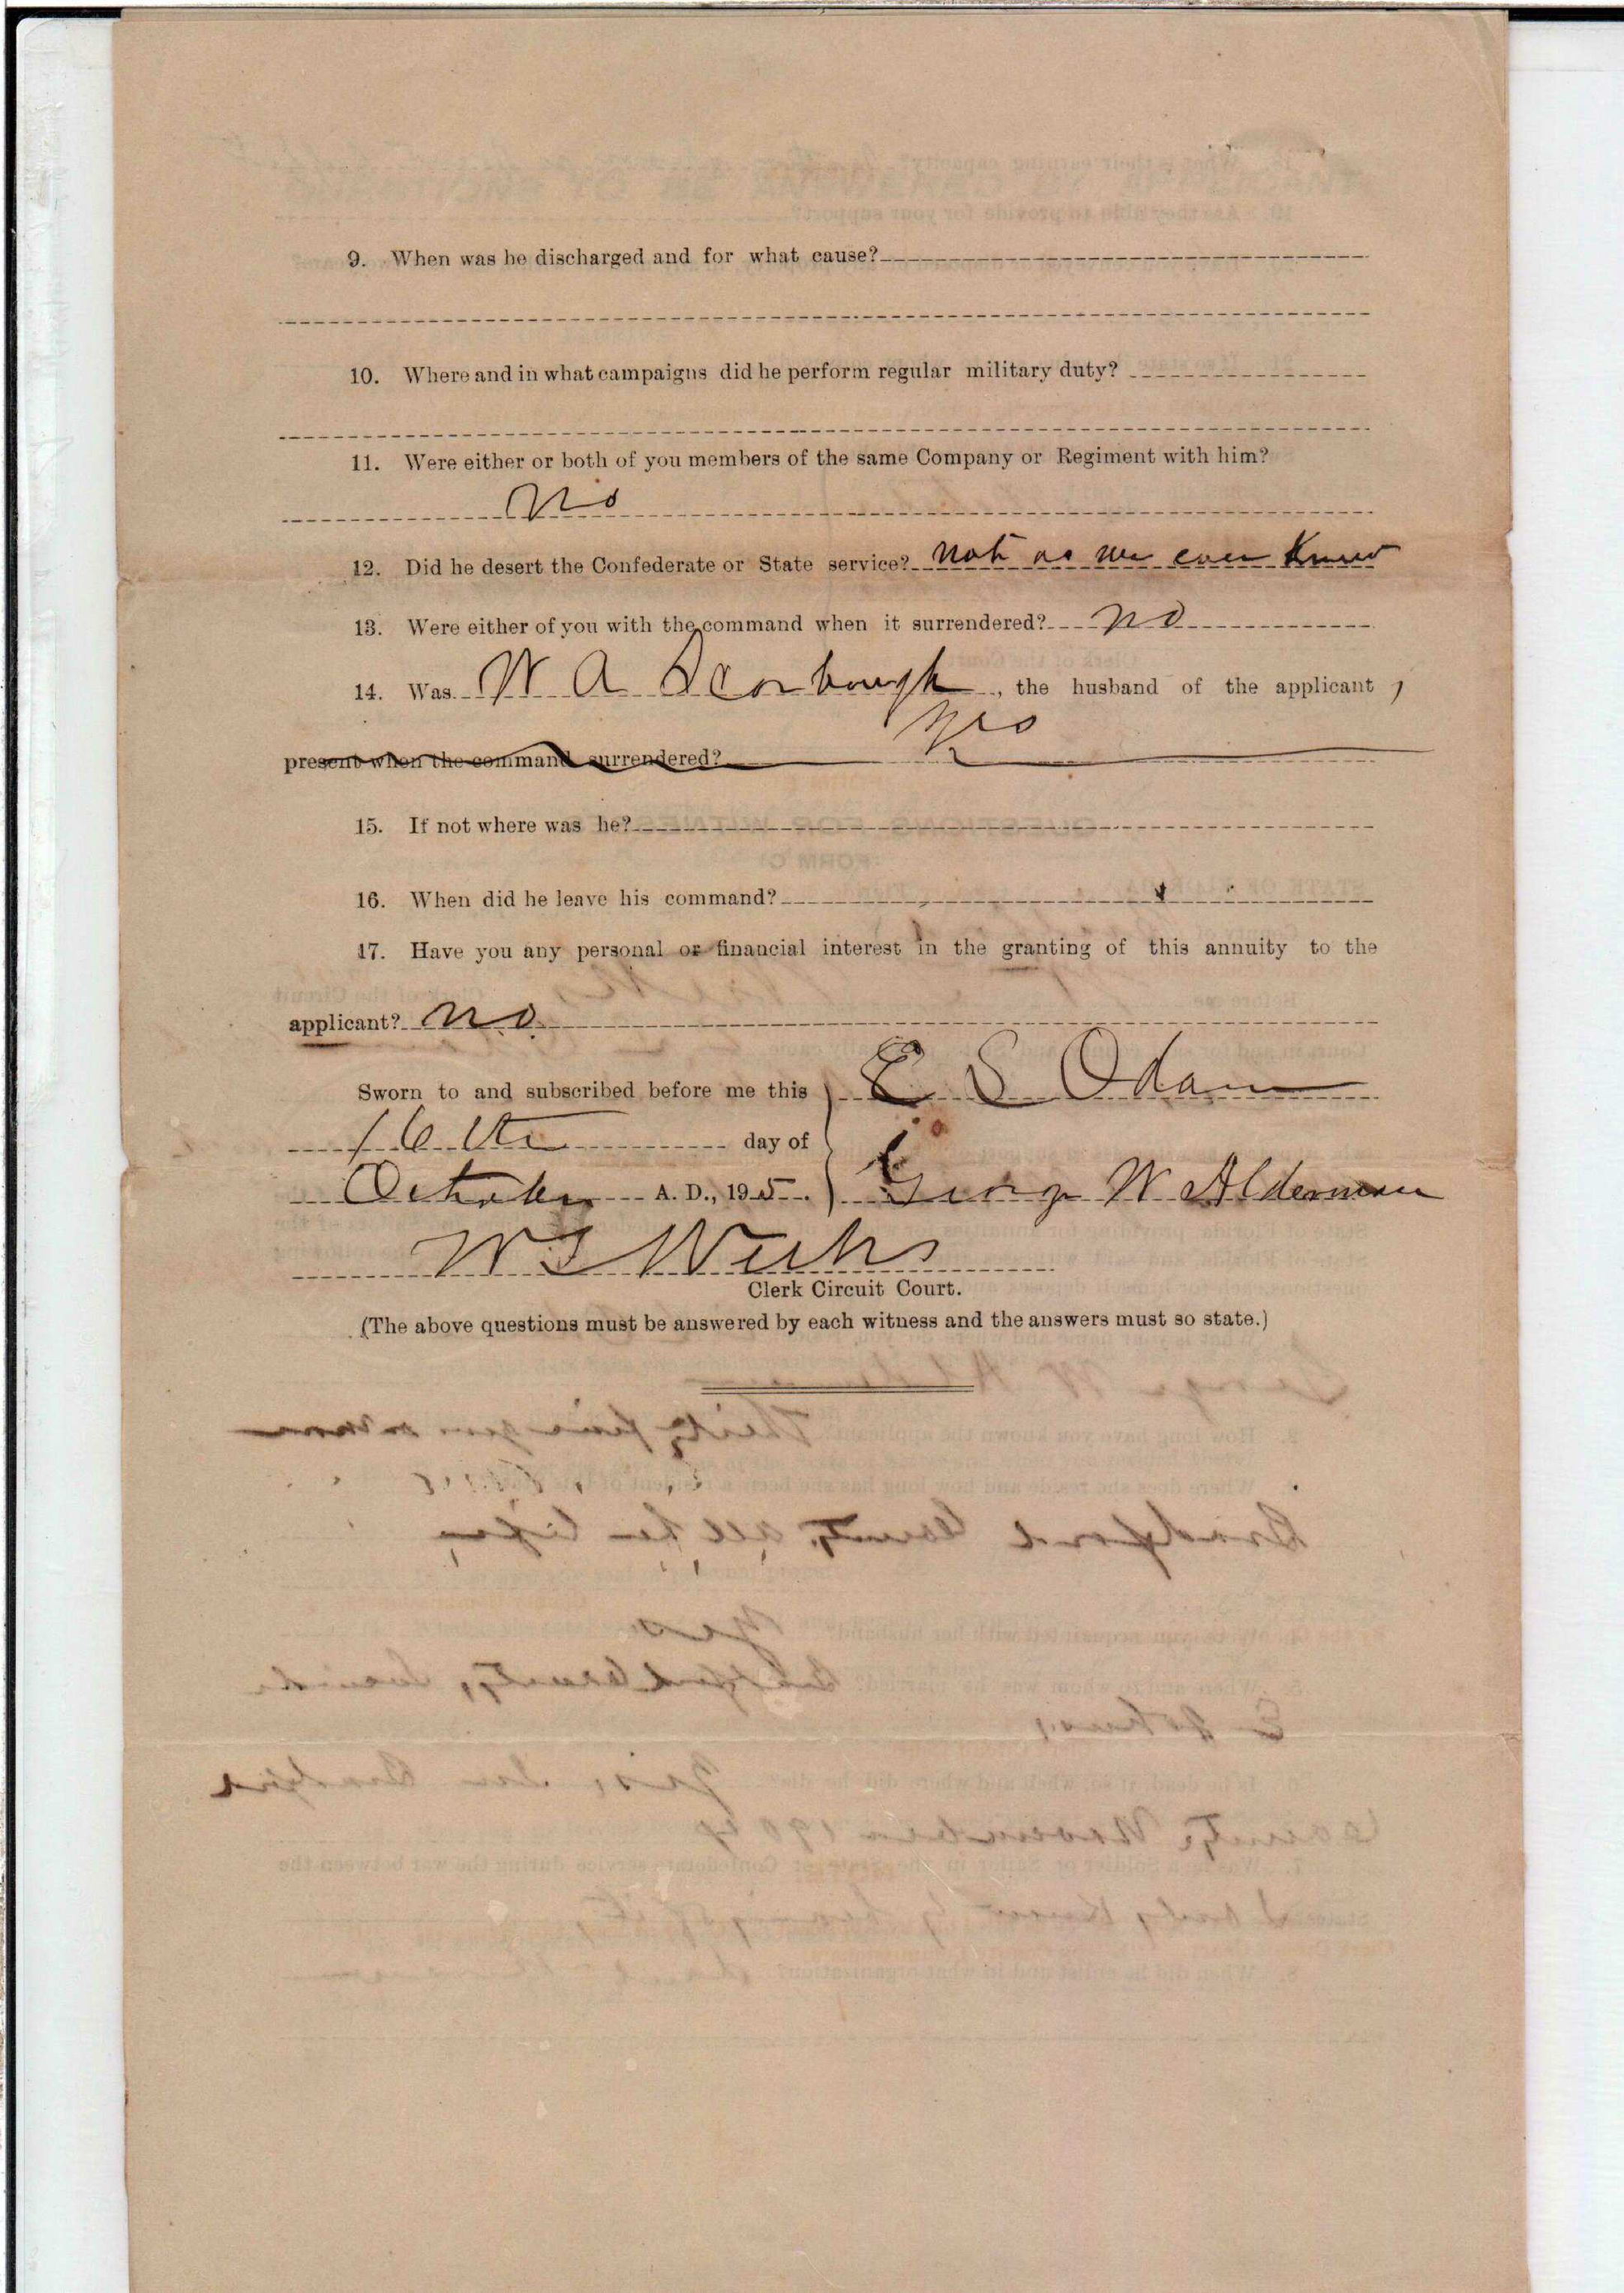 9. When was he discharged and for what cause?
10. Where and in what campaigns did he perform regular military duty?
11. Were either or both of you members of the same Company or Regiment with him?
No
12. Did he desert the Confederate or State service? not as we ever knew
13. Were either of you with the command when it surrendered? no
14. Was W A Scarbough, the husband of the applicant,
yes
present when the command surrendered?
15. If not where was he?
16. When did he leave his command?
17. Have you any personal or financial interest in the granting of this annuity to the
applicant? no
Sworn to and subscribed before me this E S Odam
16th day of
October A. D., 195. George W Alderman
W Weeks
Clerk Circuit Court.
(The above questions must be answered by each witness and the answers must so state.)